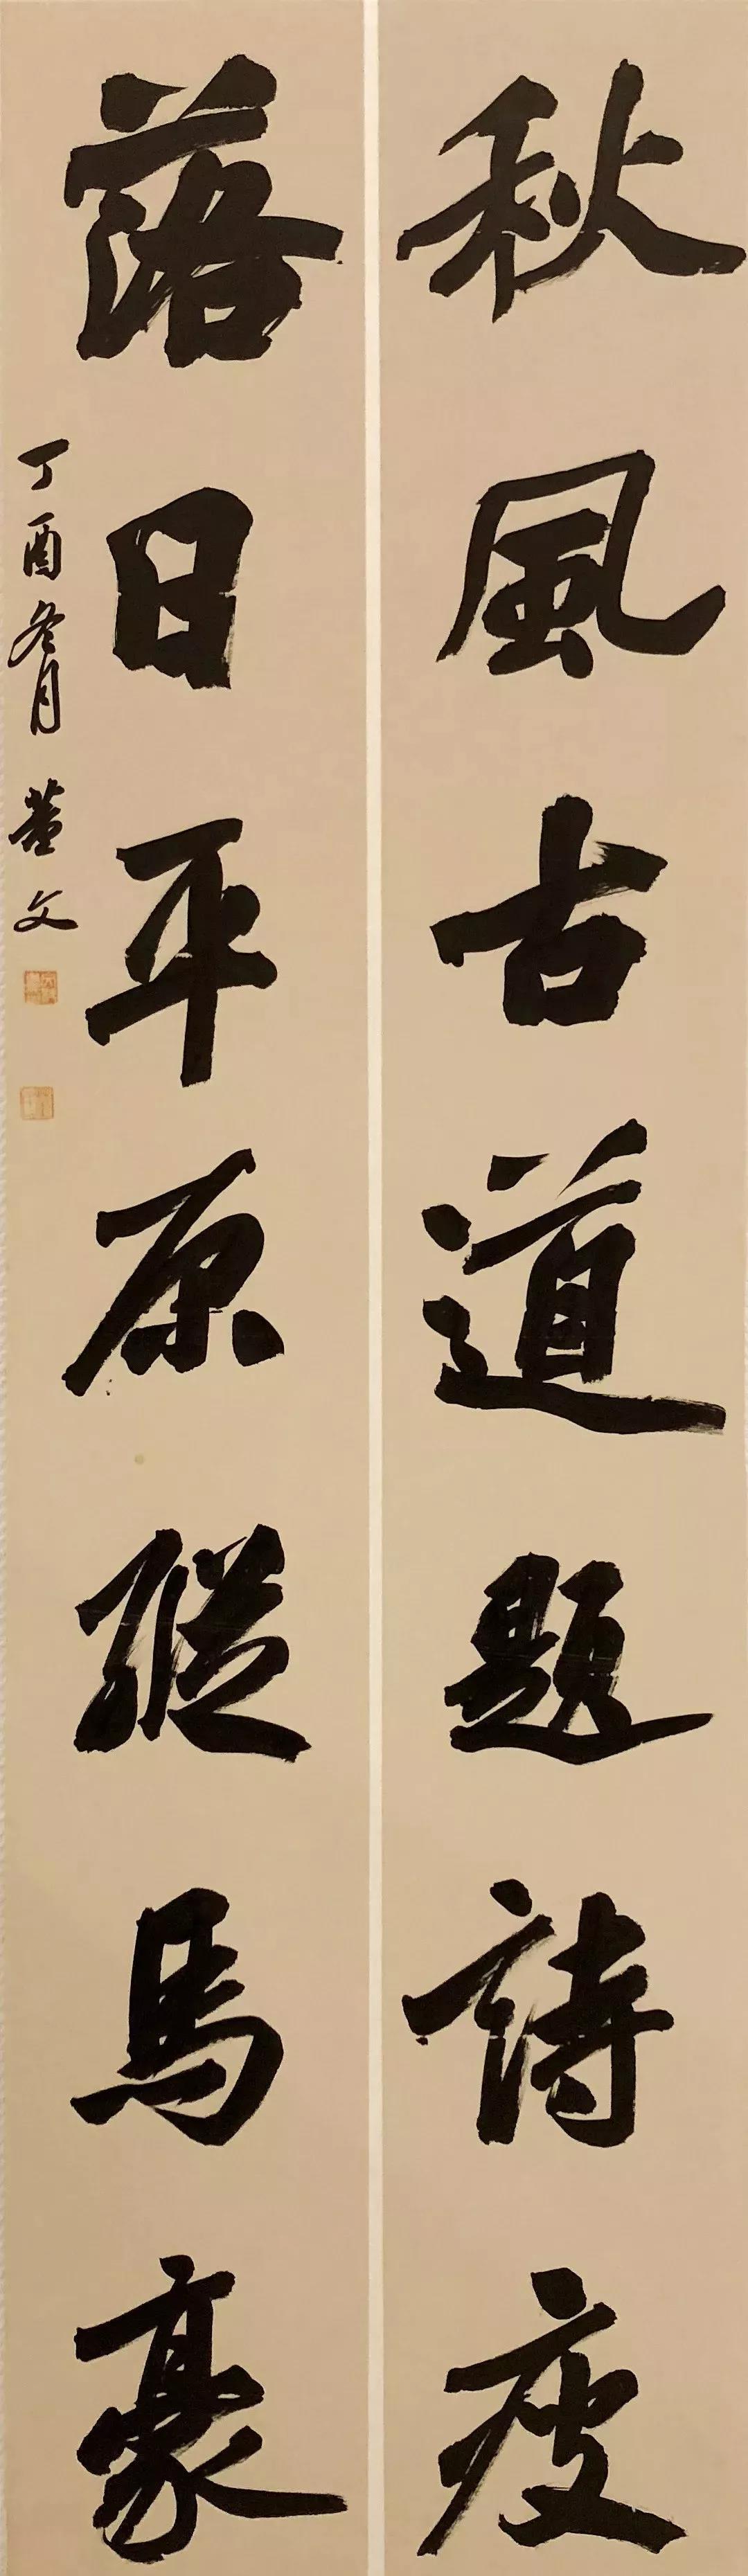 秋風古道題詩瘦
落日平原縱馬豪
丁酉冬月 董文